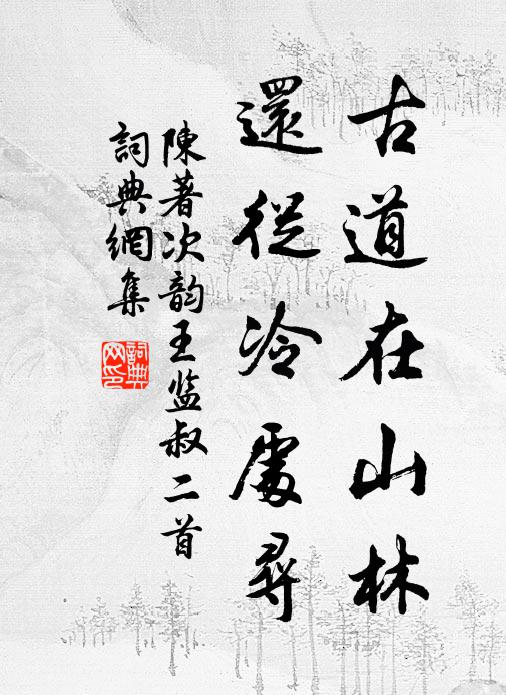 古道在山林
還從冷處尋
陳著次韵王监叔二首
詞典網集
詞典網印